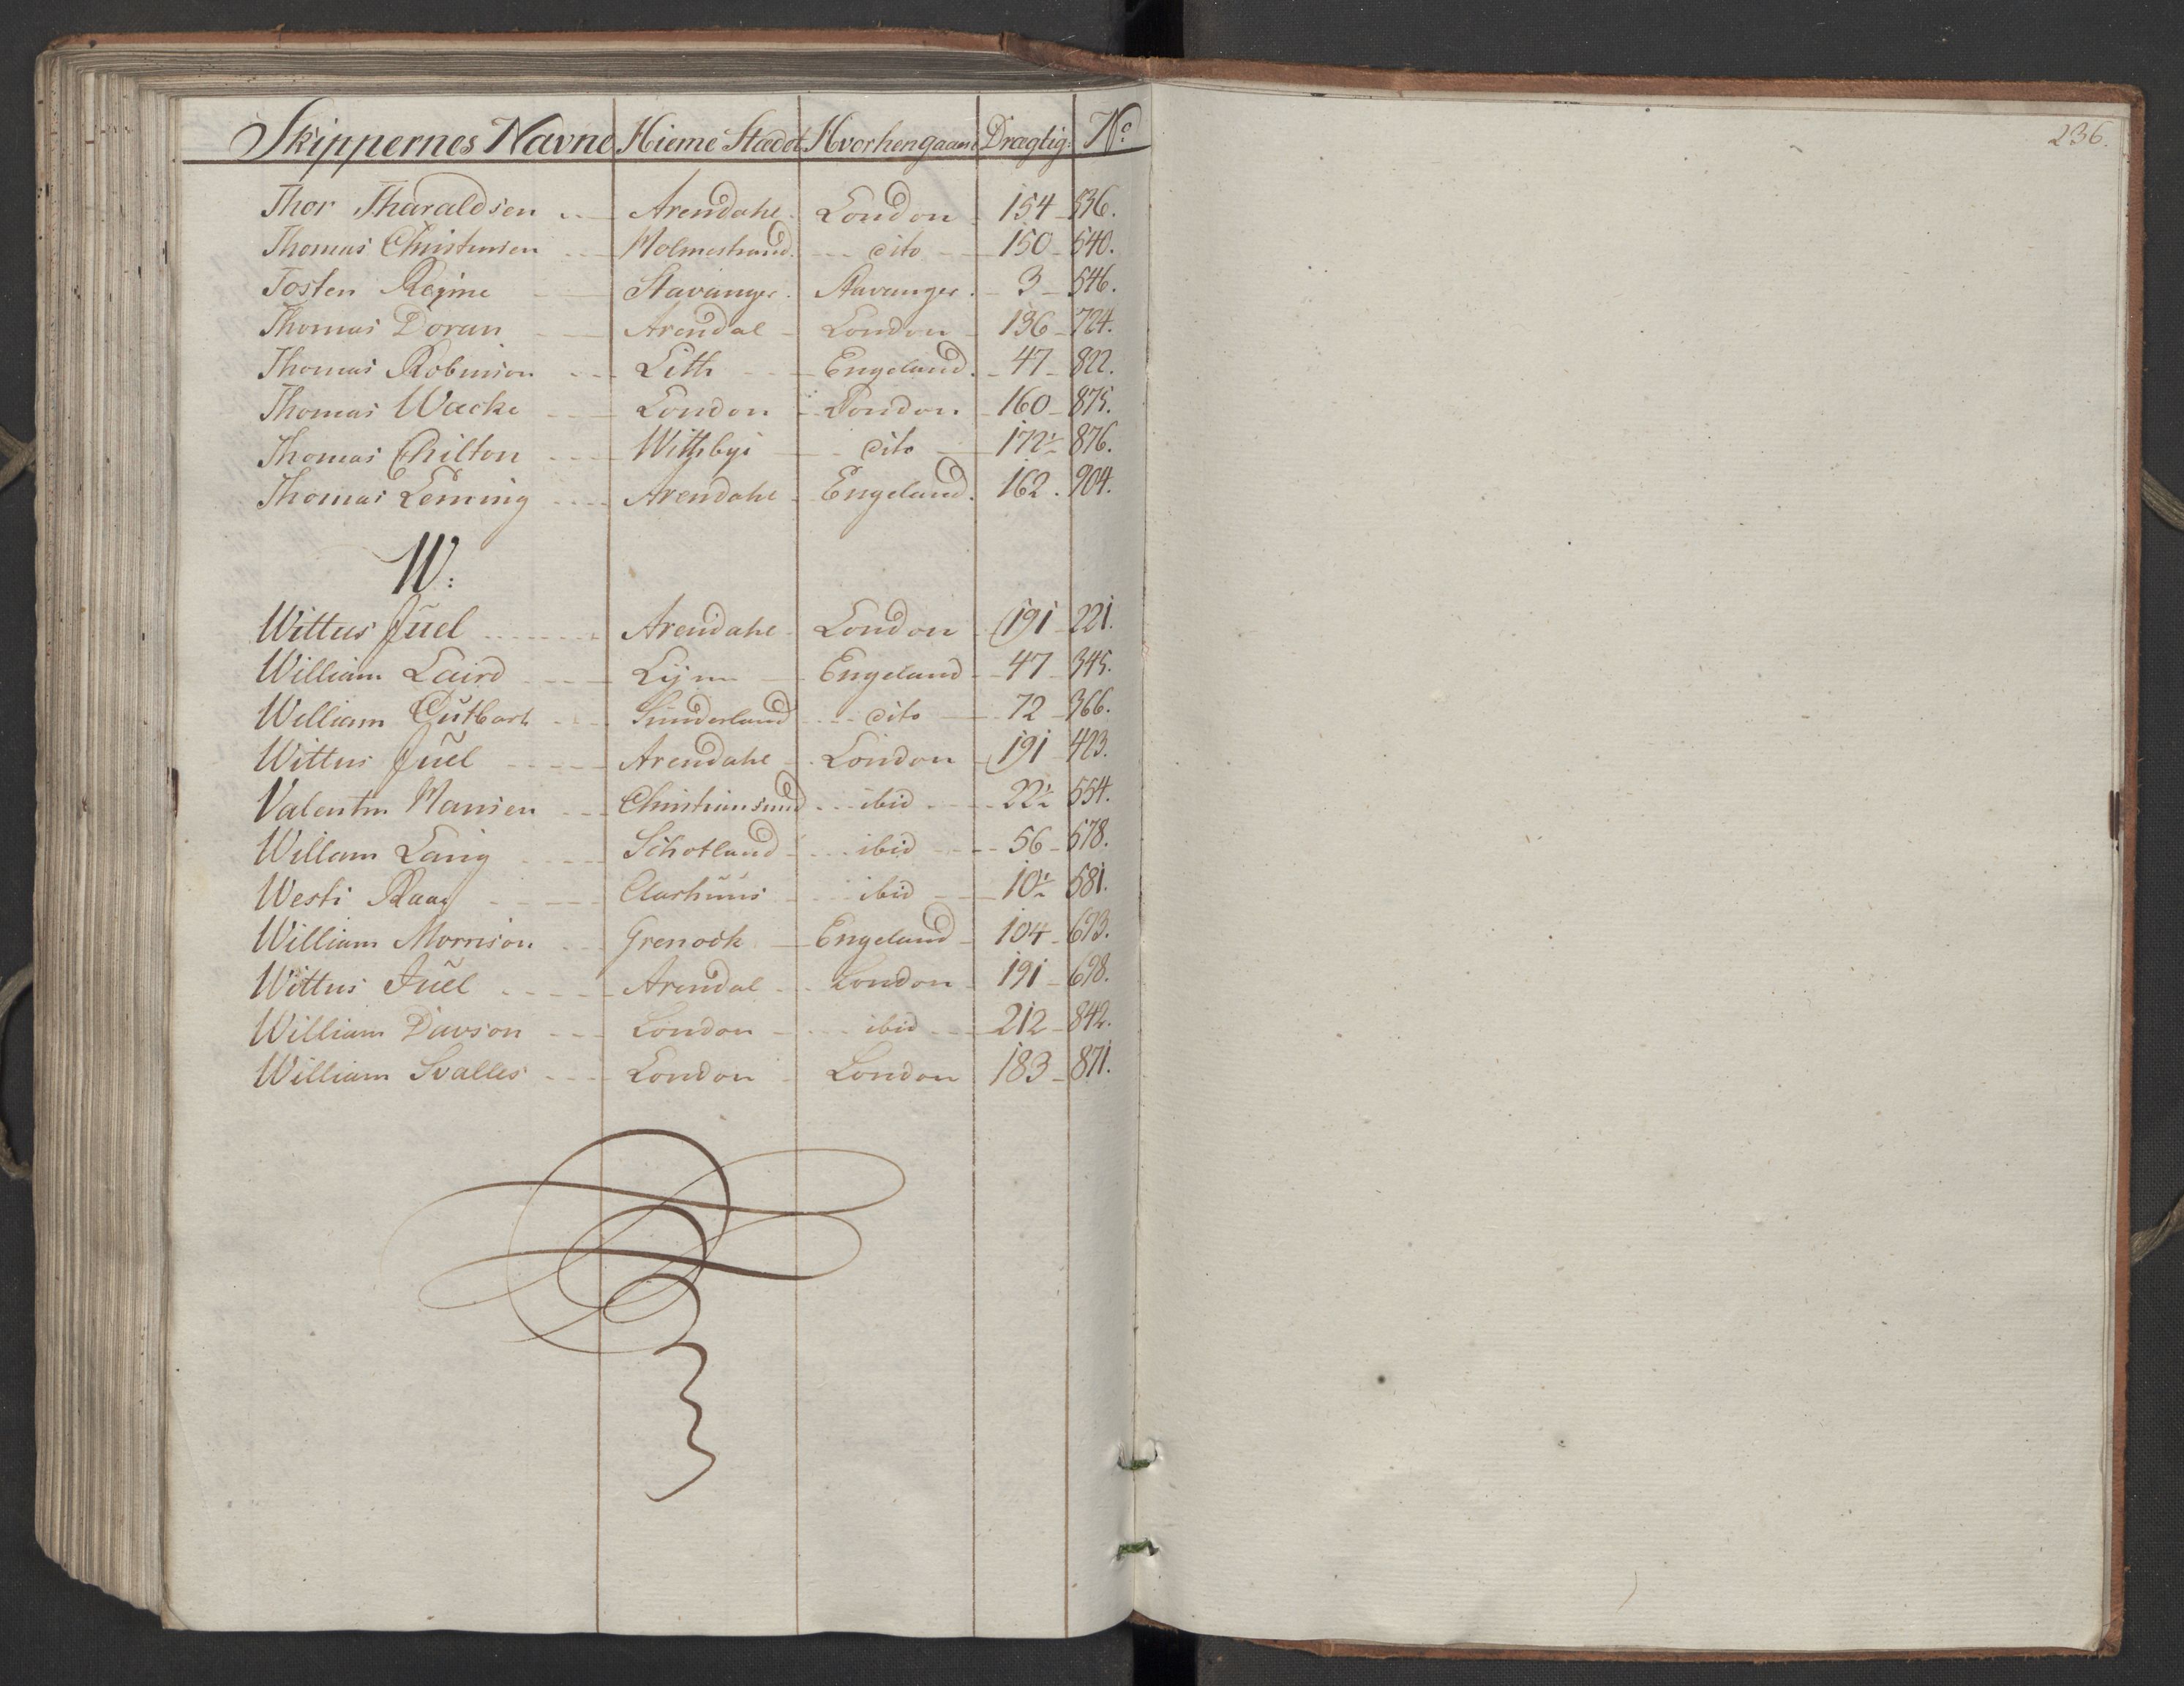 Skippernes Navne Hieme Stædet Hvorhengaaen Drægtig: No
236.
Thor Tharaldsen Arendahl London 154 536.
Thomas Christensen Holmestrand dito 150 540.
Tosten Regine Stavanger Stavanger 3 546.
Thomas Doran Arendal London 136 724.
Thomas Robinson Lith Engeland 47 822.
Thomas Wacke London London 160 875.
Thomas Chilton Withbye dito 172½ 876.
Thomas Leming Arendahl Engeland 162 904.
W:
Wittus Juel Arendahl London 191 221.
William Laird Lynn Engeland 47 345.
William Cutbart Sunderland dito 72 366.
Wittus Juel Arendahl London 191 423.
Valentin Hansen Christiansund ibid 22½ 554.
Willam Laing Schotland ibid 56 578.
Westi Raag Aarhuus ibid 10½ 581.
William Morrison Grenock Engeland 104 693.
Wittus Juel Arendal London 191 698.
William Dawson London ibid 212 842.
William Svalles London London 183 871.